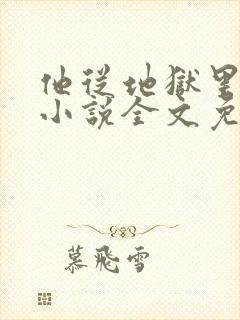 他從地獄里
小說全文免
慕飛雪